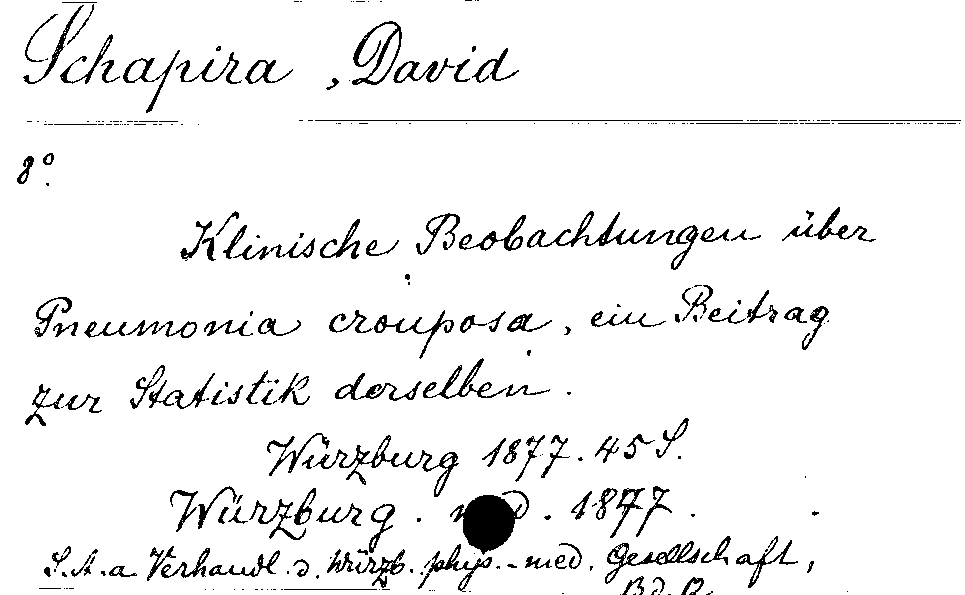 Schapira, David
8°.
Klinische Beobachtungen über
Pneumonia crouposa, ein Beitrag
zur Statistik derselben.
Würzburg 1877. 45 S.
Würzburg. med. 1877.
S. A. a. Verhandl. d. Würzb. phys.-med. Gesellschaft,
Bd.